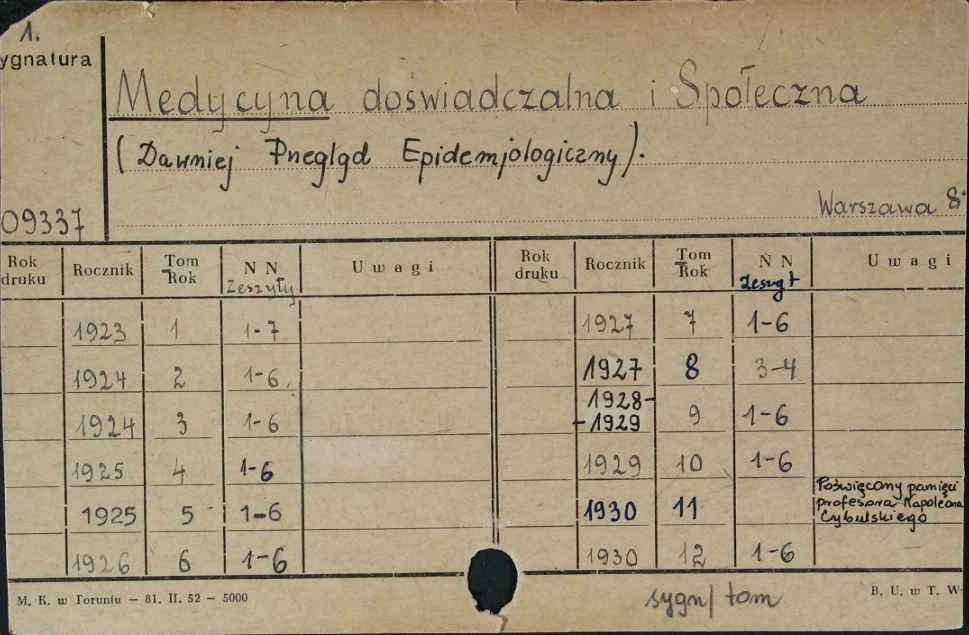 1.
ygnatura
Medycyna doświadczalna i Społeczna
(Dawniej Pnegląd Epidemjologiczny).
09337
Warszawa 8°
Rok druku Rocznik Tom Rok N N Zeszyty Uwagi Rok druku Rocznik Tom Rok N N Zeszyt Uwagi
1923 1 1-7 1927 7 1-6
1924 2 1-6. 1927 8 3-4
1924 3 1-6 1928-
-1929 9 1-6
1925 4 1-6 1929 10 1-6
1925 5 1-6 1930 11 Poświęcony pamięci
profesora Napoleona
Cybulskiego
1926 6 1-6 1930 12 1-6
M. K. w Toruniu — 81. II. 52 — 5000
sygn/ tom
B. U. w T. W